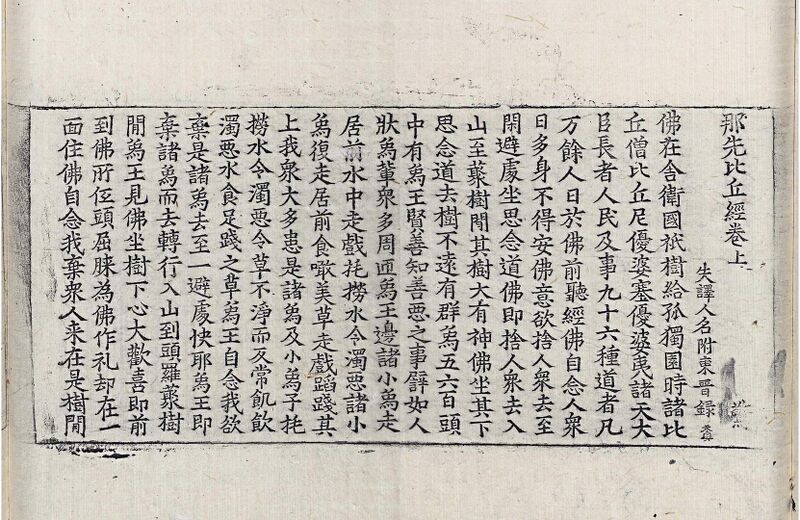 那先比丘經卷上
失譯人名附東晉錄
佛在舍衛國祇樹給孤獨園時諸比
丘僧比丘尼優婆塞優婆夷諸天大
臣長者人民及事九十六種道者凡
万餘人日於佛前聽經佛自念人衆
日多身不得安佛意欲捨人衆去至
閑避處坐思念道佛即捨人衆去入
山至藂樹間其樹大有神佛坐其下
思念道去樹不遠有群為五六百頭
中有為王賢善知善惡之事譬如人
狀為輩衆多周匝為王邊諸小為走
居前水中走戲撓撈水令濁惡諸小
為復走居前食噉美草走戲蹈踐其
上我衆大多患是諸為及小為子撓
撈水令濁惡令草不淨而反常飢飲
濁惡水食足踐之草為王自念我欲
棄是諸為去至一避處快耶為王即
棄諸為而去轉行入山到頭羅藂樹
間為王見佛坐樹下心大歡喜即前
到佛所低頭屈膝為佛作礼却在一
面住佛自念我棄衆人来在是樹間